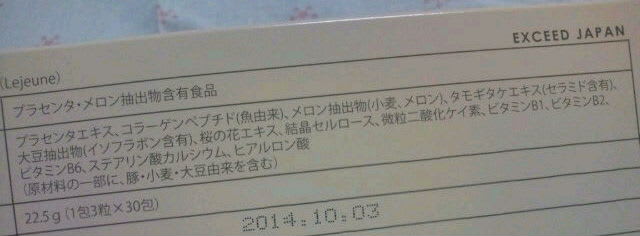 EXCEED JAPAN
(Lejeune)
プラセンタ・メロン抽出物含有食品
プラセンタエキス、コラーゲンペプチド(魚由来)、メロン抽出物(小麦、メロン)、タモギタケエキス(セラミド含有)、
大豆抽出物(イソフラボン含有)、桜の花エキス、結晶セルロース、微粒二酸化ケイ素、ビタミンB1、ビタミンB2、
ビタミンB6、ステアリン酸カルシウム、ヒアルロン酸
(原材料の一部に、豚・小麦・大豆由来を含む)
22.5g(1包3粒×30包)
2014.10.03